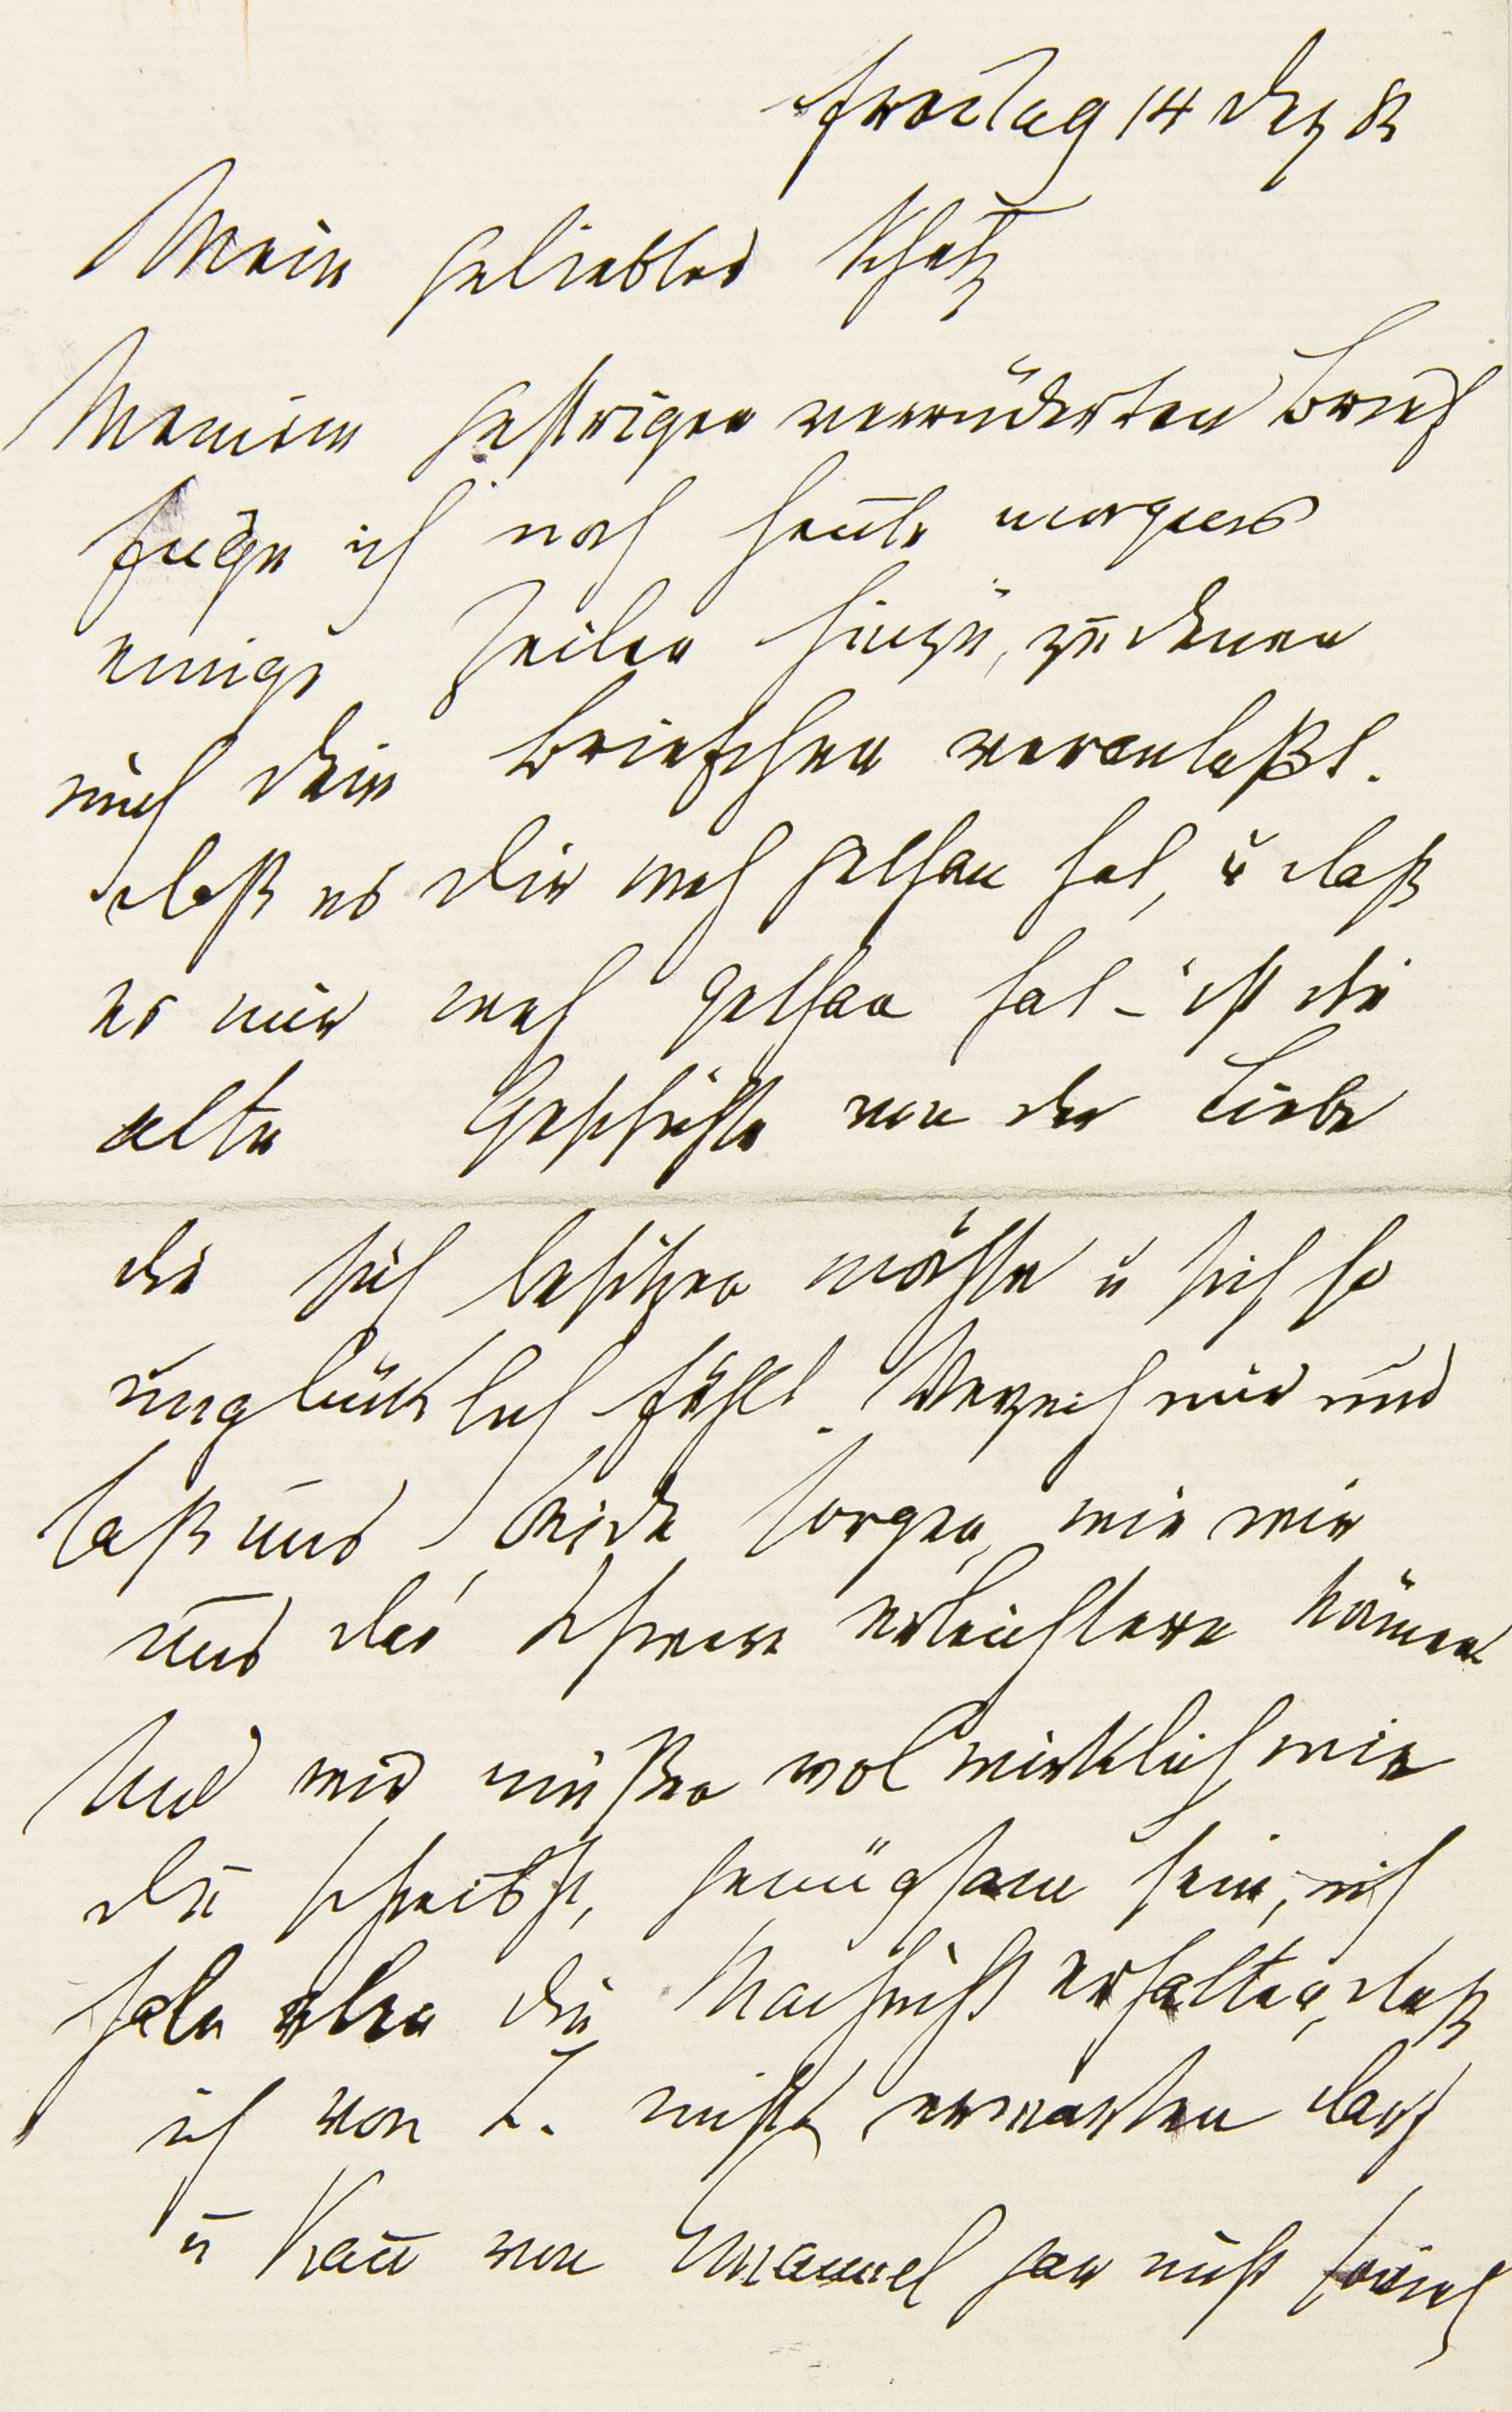 Freitag 14 Dez 83
Mein geliebter Schatz
Meinem gestrigen verrückten Brief
füge ich noch heute morgens
einige Zeilen hinzu, zu denen
mich dein Briefchen veranlaßt.
daß es dir weh gethan hat, u daß
es mir weh gethan hat – ist die
alte Geschichte von der Liebe
die sich besitzen möchte u sich so
unglücklich fühlt. Verzeih mir und
laß uns beide sorgen, wie wir
uns das Schwere erleichtern können
Und wir müßen wol wirklich wie
du schreibst, genügsam sein, ich
habe eben die Nachricht erhalten, daß
ich von L. nichts erwarten darf
u kann von Emanuel gar nicht